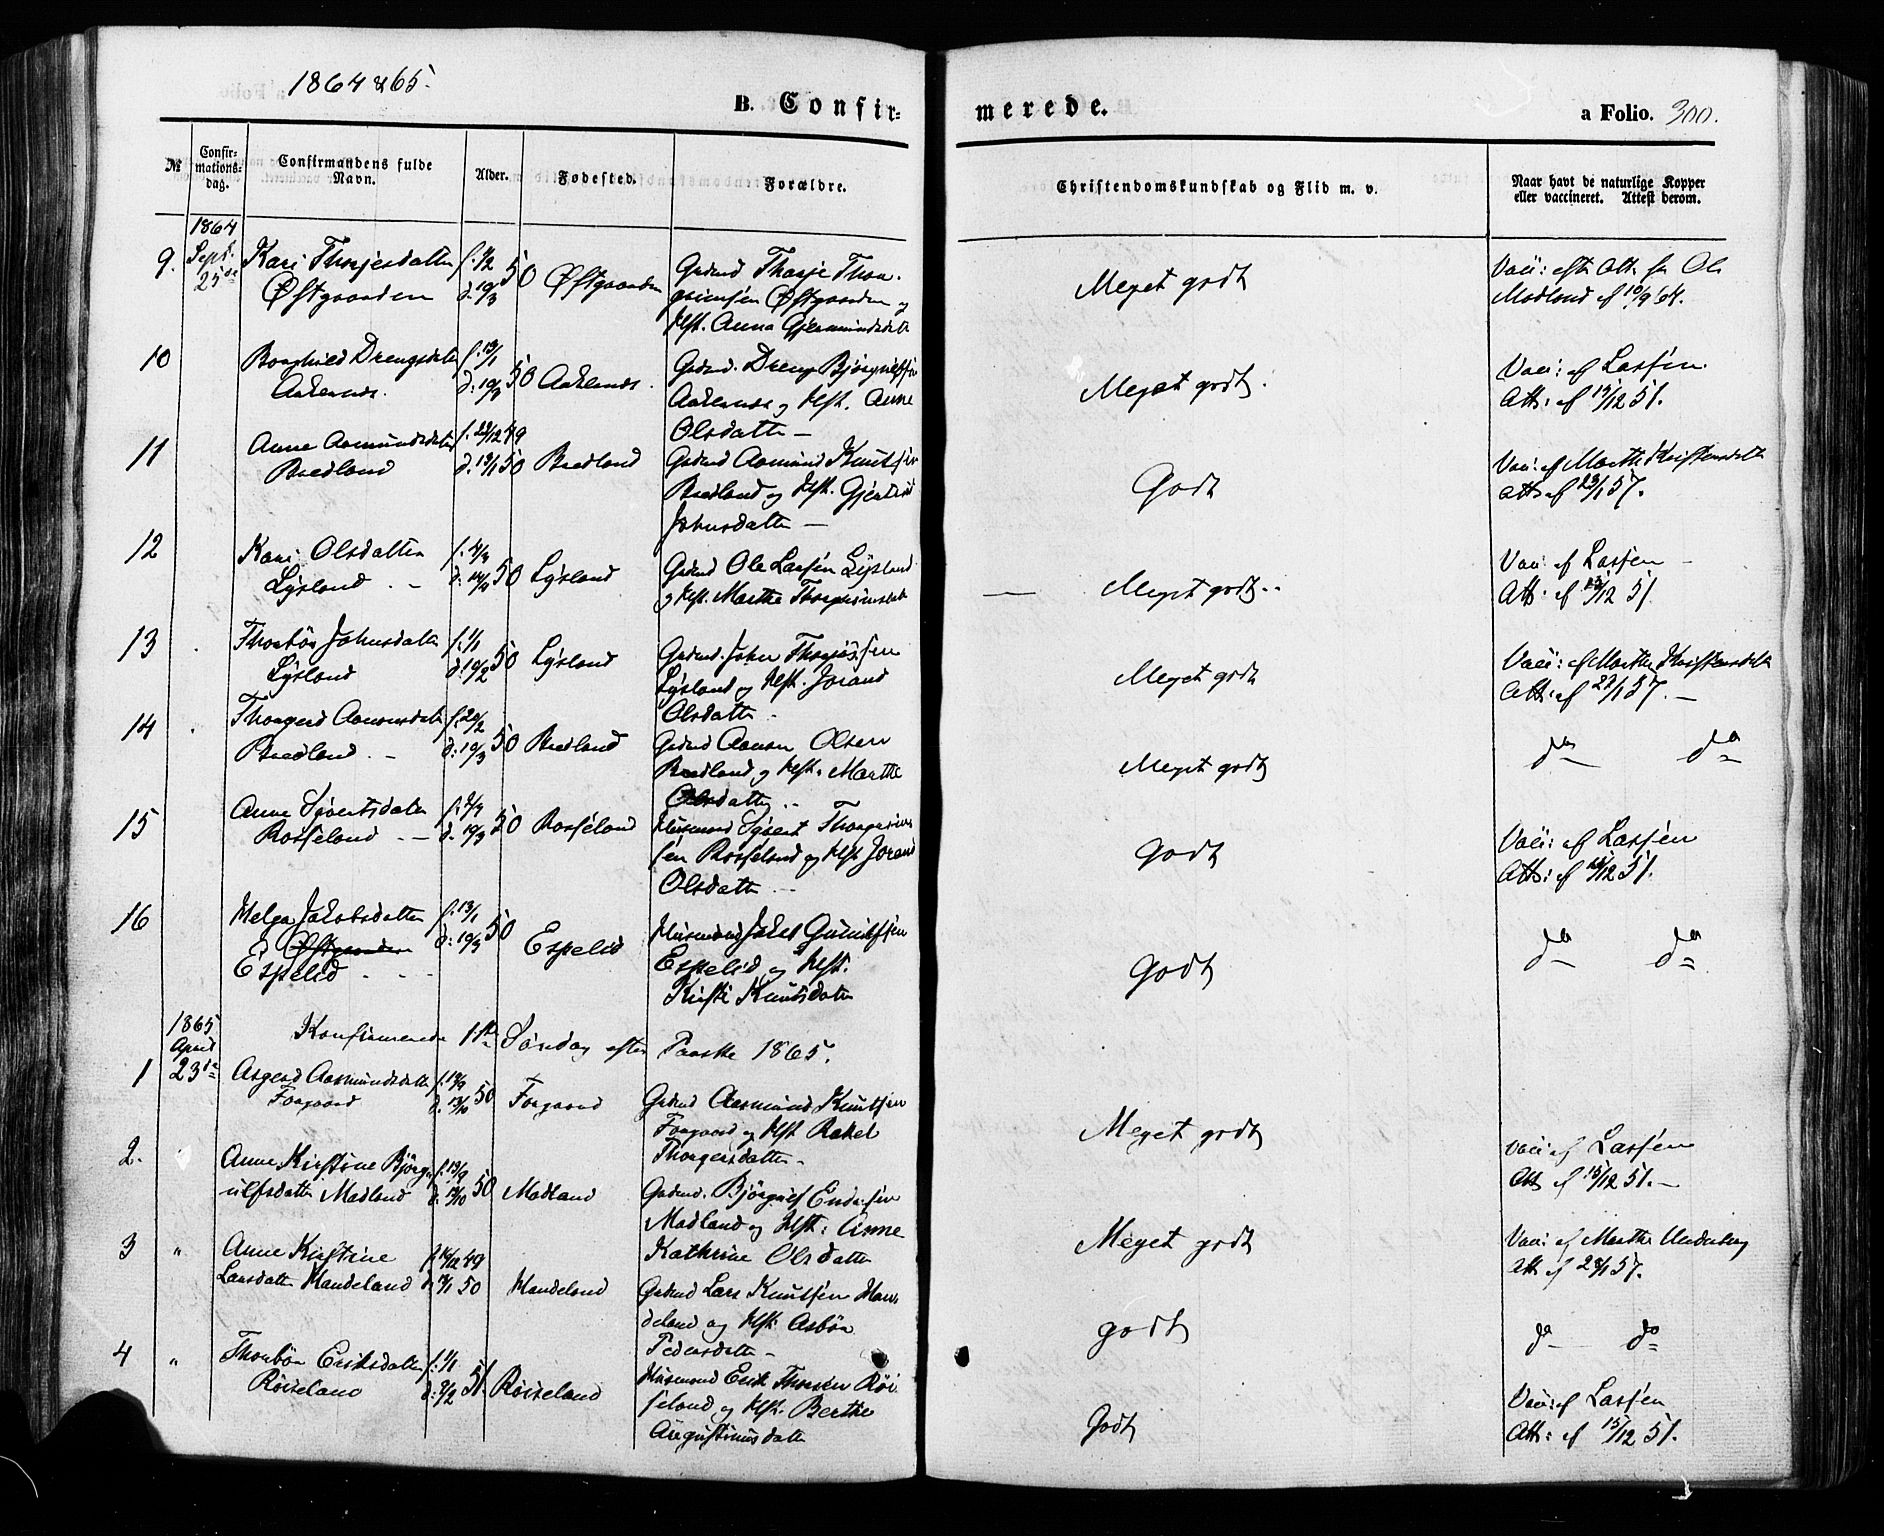 1864 & 65.
B. Confir-
merede.
a Folio. 300.
№
Confir-
mations-
dag.
Confirmandens fulde
Navn.
Alder.
Fødested.
Forældre.
Christendomskundskab og Flid m. v.
Naar havt de naturlige Kopper
eller vaccineret. Attest derom.
1864
Sept.
25de
9. Kari Thorjesdatter
Østgaarden
f. 1/2 50
d. 10/3
Østgaarden
Grdmd Thorje Thor-
grimsen Østgaarden og
Hst. Anna Gjermundsdatt
Meget godt
Vacc: efter Att. fra Ole
Modland af 10/9 64.
10 Borghild Drengsdatter
Aakernes.
f. 13/1 50
d: 10/3
Aaknes.
Grdmd. Dreng Bjørgulfsen
Aaknes og Hst. Anne
Olsdatter —
Meget godt.
Vacc: af Lassen.
Att: af 15/12 51.
11 Anne Aamundsdatter
Bredland
f. 29/12 49
d. 13/1 50
Bredland
Grdmd Aamund Knutsen
Bredland og Hst. Gjertrud
Johnsdatter —
Godt
Vacc: af Marthe Kristensdatt
Att: af 23/1 57.
12 Kari Olsdatter
Lysland
f. 4/4 50
d: 14/4
Lysland
Grdmd Ole Larsen Lysland
og Hst. Marthe Thorgrimsdatt
Meget godt
Vacc: af Lassen
Att: af 15/12 51
13 Thorbør Johnsdatter
Lysland
f. 1/1 50
d: 10/2
Lysland
Grdmd. John Thorjussen
Lysland og Hst. Jorand
Olsdatter
Meget godt
Vacc: af Marthe Kristensdatt
Att: af 23/1 57. —
14 Thorgerd Aanensdatter
Bredland
f. 20/2 50
d: 10/3
Bredland
Grdmd Aanen Olsen
Bredland og Hst. Marthe
Olsdatter
Meget godt
do do
15 Anne Sivertsdatter
Rosseland
50
d. 10/3
Rosseland
Husmand Syvert Thorgrim-
sen Rosseland og Hst Jorand
Olsdatter
Godt
Vacc: af Lassen
Att: af 15/12 51.
16 Helga Jakobsdatter
E Østgaarden
Espelid
f. 13/1 50
d: 10/3
Espelid
Husmand Jakob Gunulfsen
Espelid og Hst.
Kirsti Knutsdatter
Godt
do do
1865
April
23de
Konfirmerede 1ste Søndag efter Paaske 1865.
1 Asgerd Aasmundsdatter
Forgaard
50
d. 13/10
Forgaard
Grdmd Aasmund Knutsen
Forgaard og Hst Rakel
Thorgersdatter
Meget godt
vacc: af Lassen
Att af 15/12 51. —
2. Anne Kirstine Bjørg-
ulfsdatter Modland
f. 13/9 50
d. 13/10
Modland
Grdmd. Bjørgulf Endresen
Modland og Hst: Anne
Kathrine Olsdatter
Meget godt
Vacc: af Marthe Underberg
Att af 23/1 57.
3 " Anne Kirstine
Larsdatter Handeland
f. 16/12 49
d. 13/1 50
Handeland
Grdmd Lars Knutsen Han-
deland og Hst: Asbør
Pedersdatter —
godt
do do
4 " Thorbør Eriksdatter
Røiseland
f. 1/1 51.
d: 9/2
Røiseland
Husmand Erik Thorsen Røi-
seland og Hst. Berthe
Augustinusdatter
Godt
Vacc: af Lassen
Att: af 15/12 51.